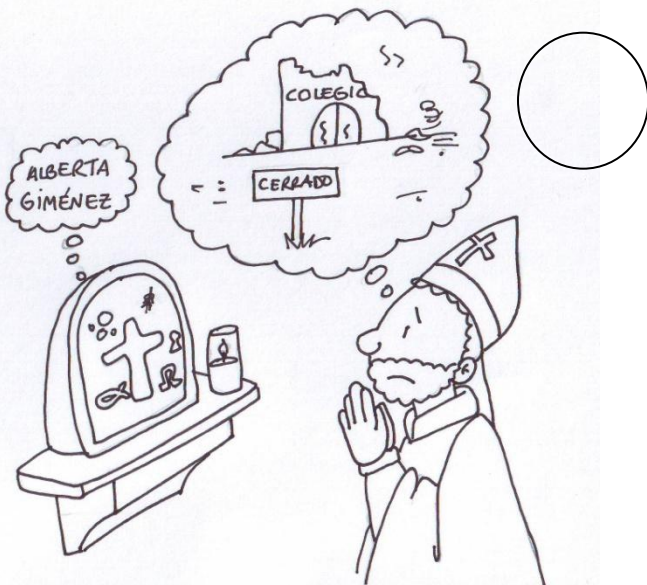 ALBERTA
GIMÉNEZ
COLEGIO
CERRADO